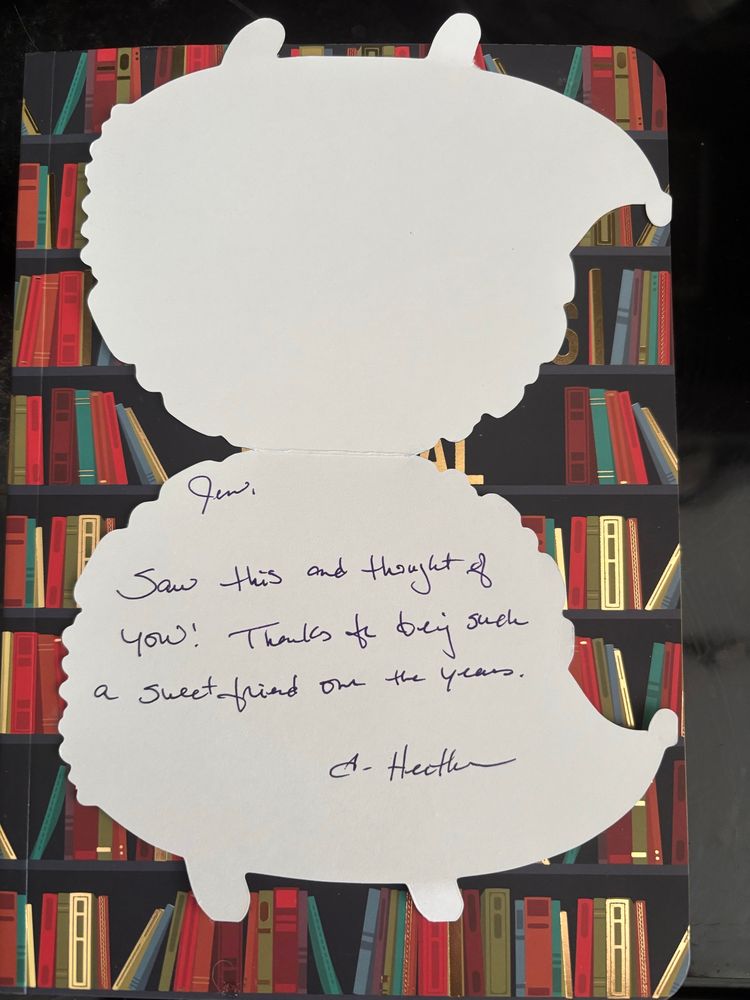 S
AL
Jen,
Saw this and thought of
you! Thanks for being such
a sweet friend over the years.
- Heather